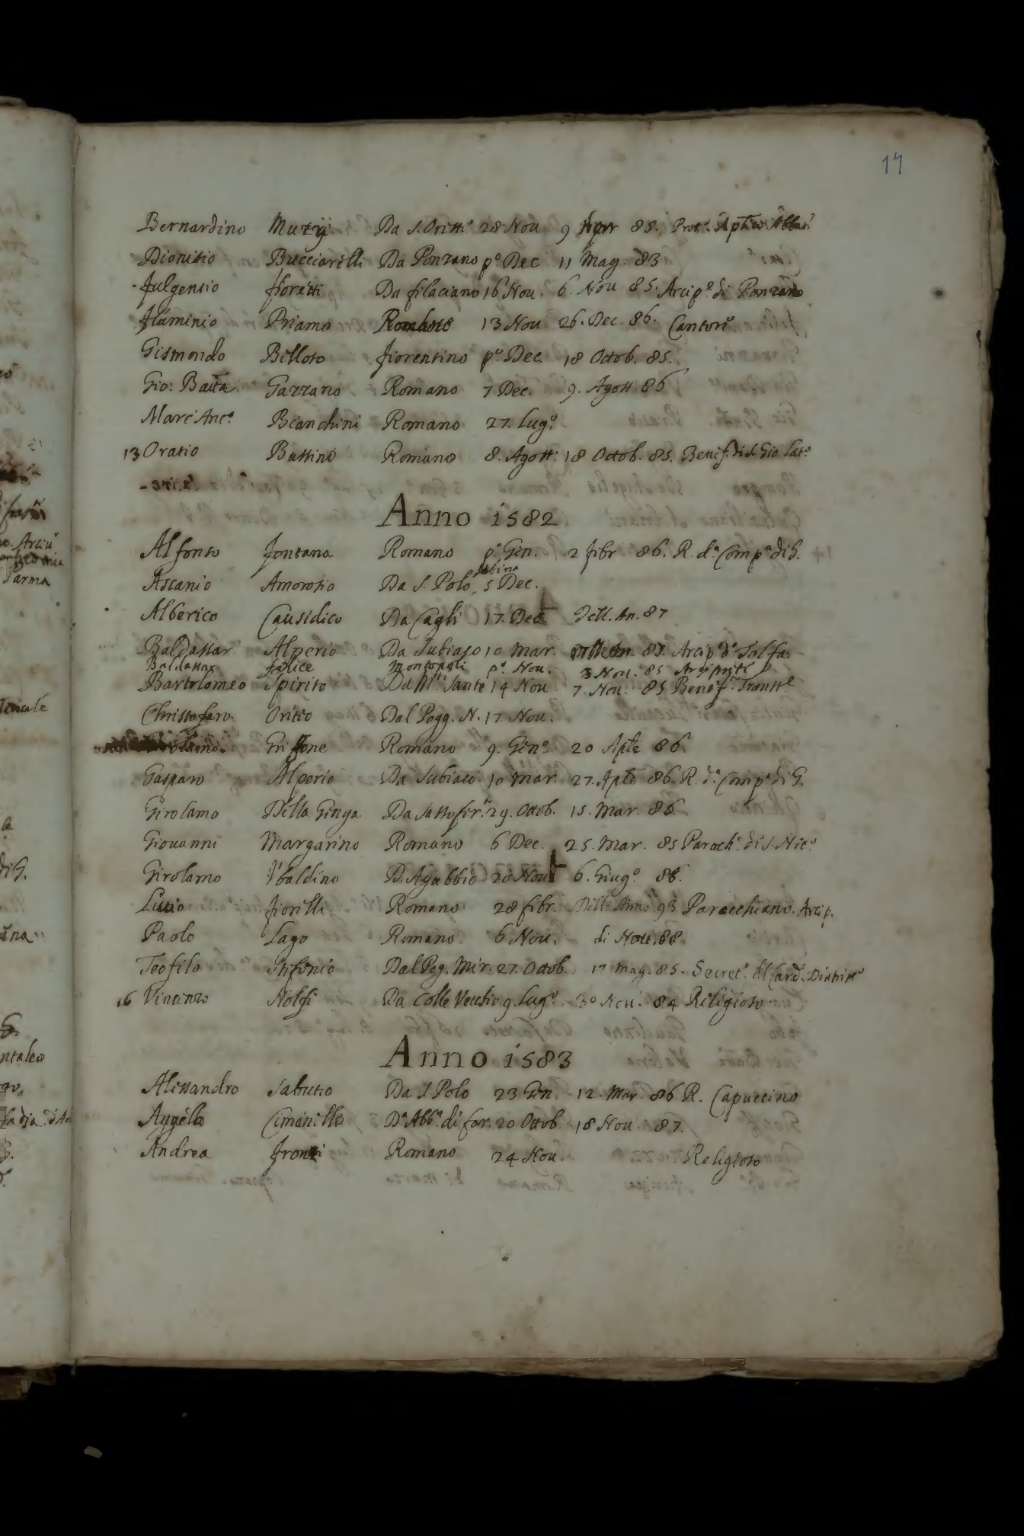 17
Bernardino Mutij Da S. Oritti° 28 Nou 9 85. Prot.
Dionisio Bucciarelli Da Ponzano p° Dec 11 Mag. 83
Fulgensio fioratti Da filaciano 16 Nou. 6. Nou 85. Arcip.° di Ponzano
Flaminio Priamo Romano 13 Nou 26. Dec. 86. Cantor
Gismondo Billoto fiorentino p° Dec. 18 Ottob. 85.
Gio: Batta Gazzano Romano 7 Dec. 9. Agost 86
Marc'Ant.° Bianchini Romano 27. Lug.°
13 Oratio Buttino Romano 8. Agost: 18 Ottob. 85. Benef. di S. Gio. Lat.°
Anno 1582
Alfonso fontana Romano p.° Gen. 2 febr 86. R. d.ª Comp.ª di G.
Ascanio Amorosio Da S. Polo, 5 Dec.
Alberico Causidico Da Cagli 17. Dec. Dell. An. 87
Baldassar Alperio Da Subiaco 10 Mar. 87. Arcip.
Baldassar felice Montopoli p.° Nou. 3 Nou. 85 Arciprete
Bartolomeo Spirito 14 Nou 7. Nou. 85 Benef.
Christofaro Oritio Dal Pogg. N. 17 Nou.
Griffone Romano 9. Gen.° 20 Aple 86
Gasparo Alperio Da Subiaco. 10 mar. 27. Aple 86. R. d.ª Comp.ª di G.
Girolamo Della Genga Da Sassofer.° 29. Ottob. 15. Mar. 86.
Giouanni Margarino Romano 6 Dec. 25. Mar. 85 Paroch.° di S. Nic.°
Girolamo Vbaldino D'Agubbio 20 Nou 6. Giug.° 86.
Liuio fiorelli Romano 28 febr. Dell'Anno 93 Arcip.
Paolo Lago Romano. 6 Nou. di Nou. 88.
Teofilo Dal Pog. Mir. 27. Ottob. 17 mag. 85. Secret.° del Card.
16 Vincenzo Nolfi Da Colle Vecchio 9. Lug.° 30 Nou. 84 Religioso
Anno 1583
Alessandro Sabutio Da S Polo 23 Gen. 12. Mar 86 R. Capuccino
Agnello Cimanello D.ª Abb.ª di far. 20 Ottob. 18 Nou 87.
Andrea Romano 24 Nou. Religioso